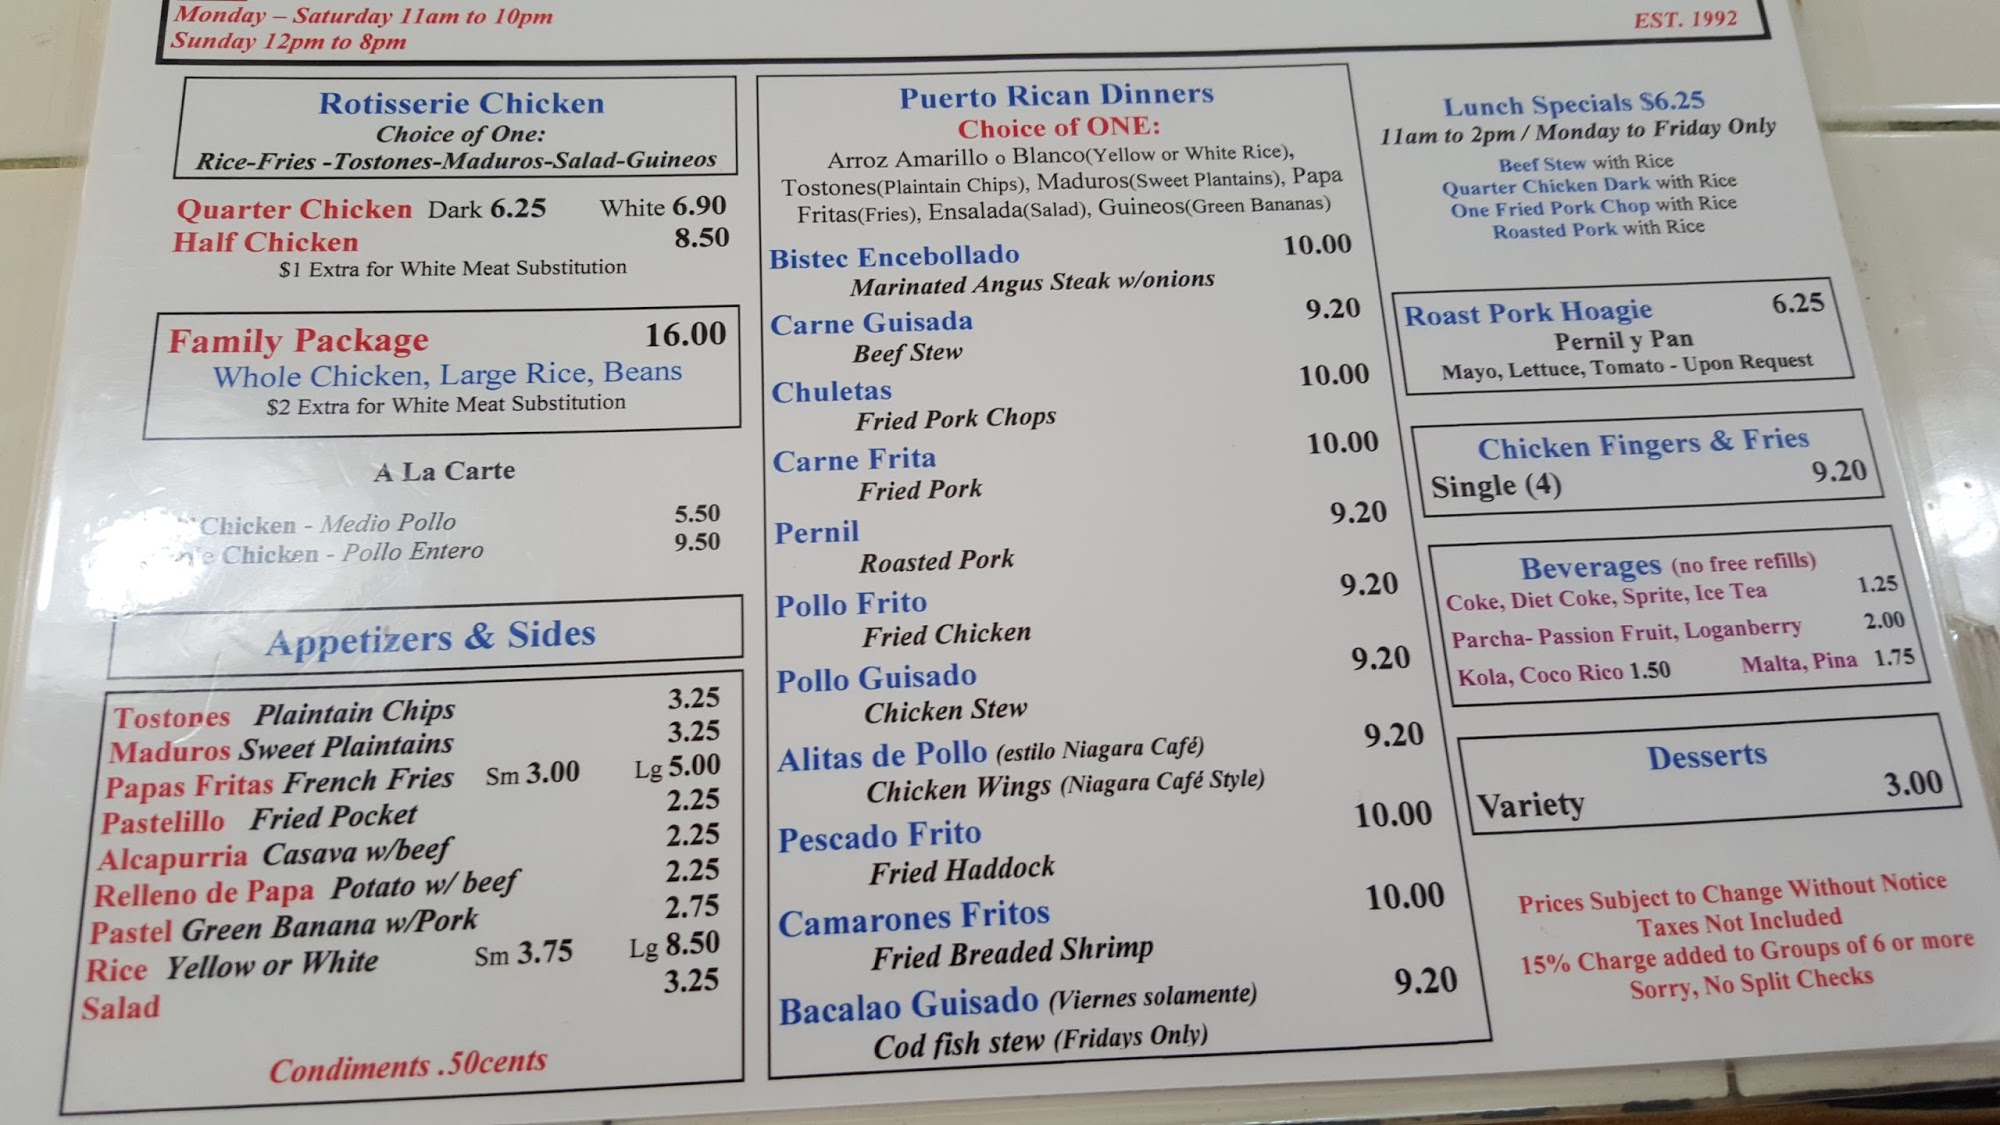 Monday – Saturday 11am to 10pm
Sunday 12pm to 8pm
EST. 1992
Rotisserie Chicken
Choice of One:
Rice-Fries -Tostones-Maduros-Salad-Guineos
Quarter Chicken Dark 6.25 White 6.90
Half Chicken 8.50
$1 Extra for White Meat Substitution
Family Package 16.00
Whole Chicken, Large Rice, Beans
$2 Extra for White Meat Substitution
A La Carte
Chicken - Medio Pollo 5.50
Chicken - Pollo Entero 9.50
Appetizers & Sides
Tostones Plaintain Chips 3.25
Maduros Sweet Plaintains 3.25
Papas Fritas French Fries Sm 3.00 Lg 5.00
Pastelillo Fried Pocket 2.25
Alcapurria Casava w/beef 2.25
Relleno de Papa Potato w/ beef 2.25
Pastel Green Banana w/Pork 2.75
Rice Yellow or White Sm 3.75 Lg 8.50
Salad 3.25
Condiments .50cents
Puerto Rican Dinners
Choice of ONE:
Arroz Amarillo o Blanco(Yellow or White Rice),
Tostones(Plaintain Chips), Maduros(Sweet Plantains), Papa
Fritas(Fries), Ensalada(Salad), Guineos(Green Bananas)
Bistec Encebollado 10.00
Marinated Angus Steak w/onions
Carne Guisada 9.20
Beef Stew
Chuletas 10.00
Fried Pork Chops
Carne Frita 10.00
Fried Pork
Pernil 9.20
Roasted Pork
Pollo Frito 9.20
Fried Chicken
Pollo Guisado 9.20
Chicken Stew
Alitas de Pollo (estilo Niagara Café) 9.20
Chicken Wings (Niagara Café Style)
Pescado Frito 10.00
Fried Haddock
Camarones Fritos 10.00
Fried Breaded Shrimp
Bacalao Guisado (Viernes solamente) 9.20
Cod fish stew (Fridays Only)
Lunch Specials $6.25
11am to 2pm / Monday to Friday Only
Beef Stew with Rice
Quarter Chicken Dark with Rice
One Fried Pork Chop with Rice
Roasted Pork with Rice
Roast Pork Hoagie 6.25
Pernil y Pan
Mayo, Lettuce, Tomato - Upon Request
Chicken Fingers & Fries
Single (4) 9.20
Beverages (no free refills)
Coke, Diet Coke, Sprite, Ice Tea 1.25
Parcha- Passion Fruit, Loganberry 2.00
Kola, Coco Rico 1.50 Malta, Pina 1.75
Desserts
Variety 3.00
Prices Subject to Change Without Notice
Taxes Not Included
15% Charge added to Groups of 6 or more
Sorry, No Split Checks